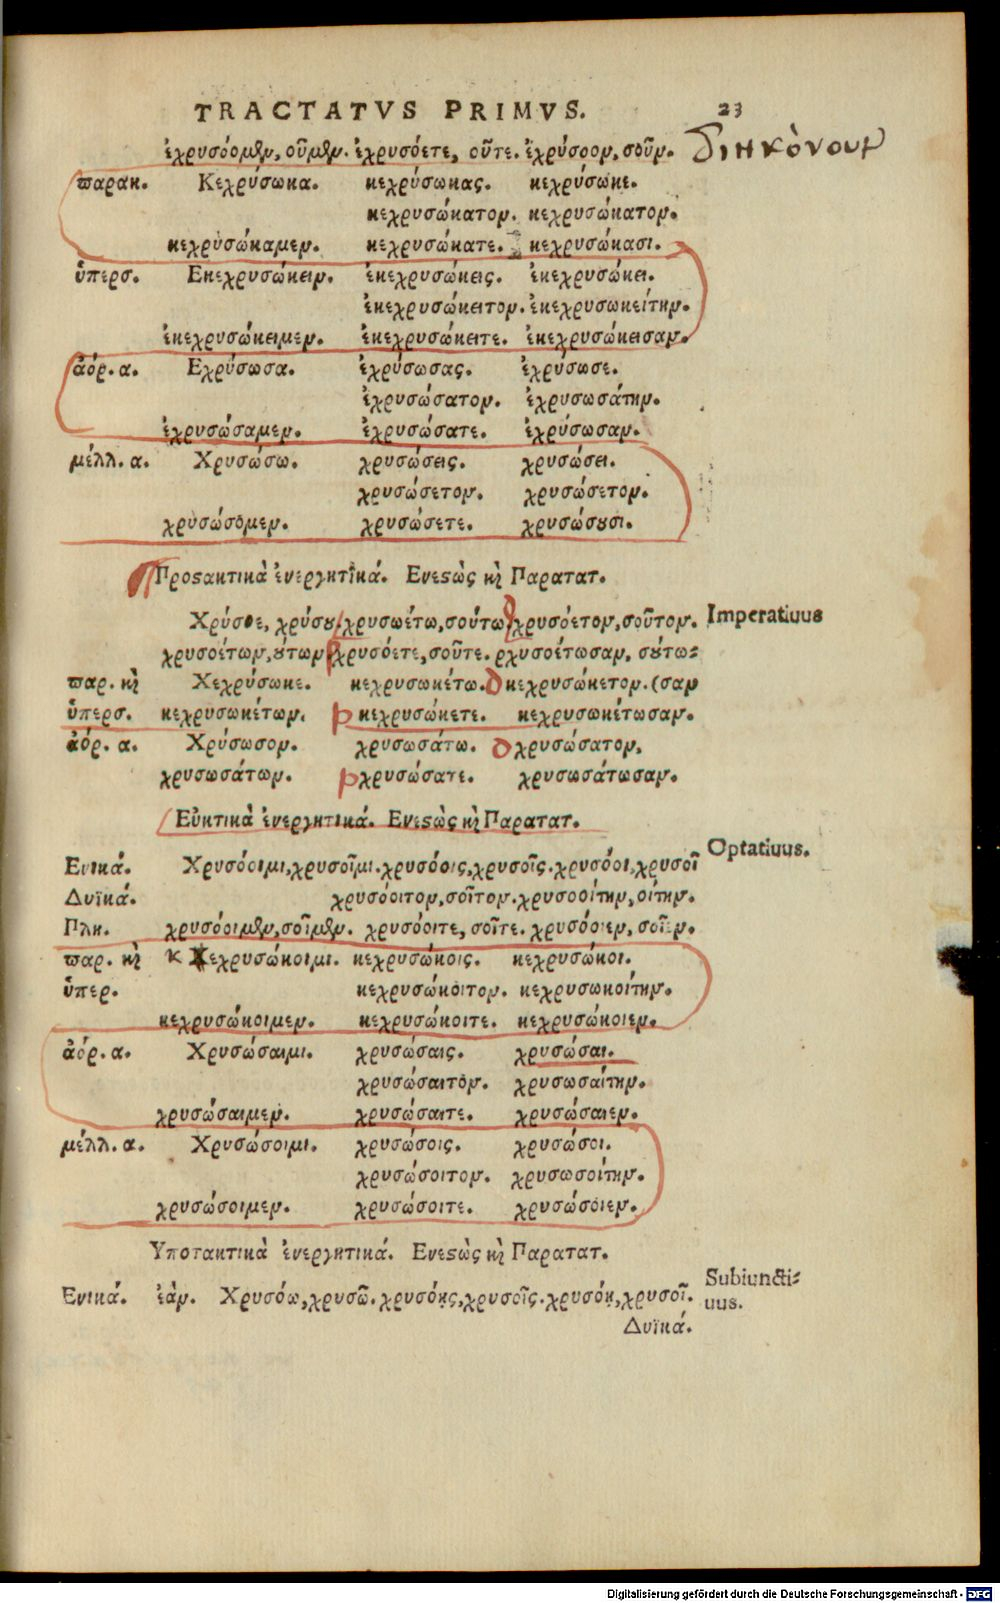 TRACTATVS PRIMVS. 23
ἐχρυσόομεν, οῦμεν. ἐχρυσόετε, οῦτε. ἐχρύσοον, σουν. διηκόνουν
παρακ. Κεχρύσωκα. κεχρύσωκας. κεχρύσωκε.
κεχρυσώκατον. κεχρυσώκατον.
κεχρυσώκαμεν. κεχρυσώκατε. κεχρυσώκασι.
ὑπερς. Εκεχρυσώκειν. ἐκεχρυσώκεις. ἐκεχρυσώκει.
ἐκεχρυσώκειτον. ἐκεχρυσωκείτην.
ἐκεχρυσώκειμεν. ἐκεχρυσώκειτε. ἐκεχρυσώκεισαν.
ἀόρ. α. Εχρύσωσα. ἐχρύσωσας. ἐχρύσωσε.
ἐχρυσώσατον. ἐχρυσωσάτην.
ἐχρυσώσαμεν. ἐχρυσώσατε. ἐχρύσωσαν.
μέλλ. α. Χρυσώσω. χρυσώσεις. χρυσώσει.
χρυσώσετον. χρυσώσετον.
χρυσώσομεν. χρυσώσετε. χρυσώσουσι.
Προςακτικὰ ἐνεργητικά. Ενεςὼς κὴ Παρατατ.
Χρύσοε, χρύσου. χρυσωέτω, σούτω χρυσοέτον, σοῦτον. Imperatiuus
χρυσοέτων, ούτων χρυσόετε, σοῦτε. ρχυσοέτωσαν, σούτω-
παρ. κὴ Χεχρύσωκε. κεχρυσωκέτω. δ κεχρυσώκετον. (σαν
ὑπερς. κεχρυσωκέτων. p κεχρυσώκετε. κεχρυσωκέτωσαν.
ἀόρ. α. Χρύσωσον. χρυσωσάτω. δ χρυσώσατον.
χρυσωσάτων. p χρυσώσατε. χρυσωσάτωσαν.
Εὐκτικὰ ἐνεργητικά. Ενεςὼς κὴ Παρατατ.
Optatiuus.
Ενικά. Χρυσόοιμι, χρυσοῖμι. χρυσόοις, χρυσοῖς. χρυσόοι, χρυσοῖ
Δυϊκά. χρυσόοιτον, σοῖτον. χρυσοοίτην, οίτην.
Πλη. χρυσόοιμεν, σοῖμεν. χρυσόοιτε, σοῖτε. χρυσόοιεν, σοῖεν.
παρ. κὴ κ Χεχρυσώκοιμι. κεχρυσώκοις. κεχρυσώκοι.
ὑπερ. κεχρυσώκοιτον. κεχρυσωκοίτην.
κεχρυσώκοιμεν. κεχρυσώκοιτε. κεχρυσώκοιεν.
ἀόρ. α. Χρυσώσαιμι. χρυσώσαις. χρυσώσαι.
χρυσώσαιτον. χρυσωσαίτην.
χρυσώσαιμεν. χρυσώσαιτε. χρυσώσαιεν.
μέλλ. α. Χρυσώσοιμι. χρυσώσοις. χρυσώσοι.
χρυσώσοιτον. χρυσωσοίτην.
χρυσώσοιμεν. χρυσώσοιτε. χρυσώσοιεν.
Υποτακτικὰ ἐνεργητικά. Ενεςὼς κὴ Παρατατ.
Subiuncti-
Ενικά. ἐὰν. Χρυσόω, χρυσῶ. χρυσόῃς, χρυσοῖς. χρυσόῃ, χρυσοῖ. uus.
Δυϊκά.
Digitalisierung gefördert durch die Deutsche Forschungsgemeinschaft - DFG